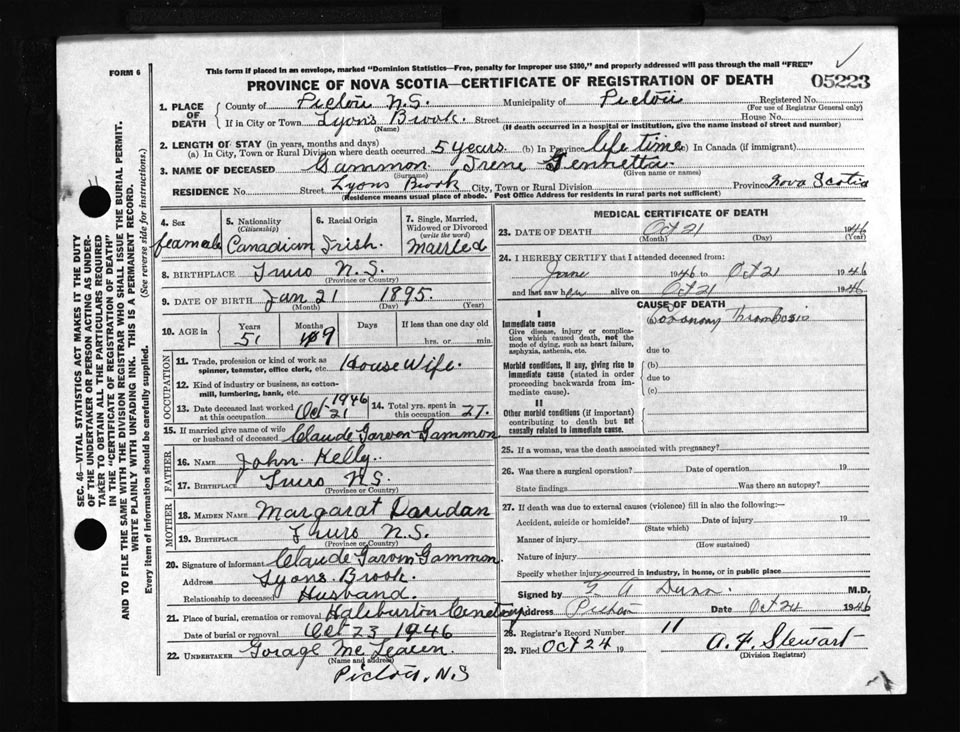 This form if placed in an envelope, marked "Dominion Statistics—Free, penalty for improper use $300," and properly addressed will pass through the mail "FREE"
FORM 6
PROVINCE OF NOVA SCOTIA—CERTIFICATE OF REGISTRATION OF DEATH
05223
1. PLACE OF DEATH
County of Pictou N.S. Municipality of Pictou Registered No.
(For use of Registrar General only)
If in City or Town Lyons Brook. Street House No.
(Name) (If death occurred in a hospital or institution, give the name instead of street and number)
2. LENGTH OF STAY (in years, months and days)
(a) In City, Town or Rural Division where death occurred 5 years. (b) In Province life time (c) In Canada (if immigrant)
3. NAME OF DECEASED Gammon Irene Henrietta
(Surname) (Given name or names)
RESIDENCE No. Street Lyons Brook City, Town or Rural Division Province Nova Scotia
(Residence means usual place of abode. Post Office Address for residents in rural parts not sufficient)
4. Sex
feamale
5. Nationality
(Citizenship)
Canadian
6. Racial Origin
Irish.
7. Single, Married, Widowed or Divorced
(write the word)
Married
8. BIRTHPLACE Truro N.S.
(Province or Country)
9. DATE OF BIRTH Jan 21 1895.
(Month) (Day) (Year)
10. AGE in Years Months Days If less than one day old
51 9 hrs. or min.
OCCUPATION
11. Trade, profession or kind of work as spinner, teamster, office clerk, etc. House Wife.
12. Kind of industry or business, as cotton-mill, lumbering, bank, etc.
13. Date deceased last worked at this occupation Oct 21 1946
14. Total yrs. spent in this occupation 27.
15. If married give name of wife or husband of deceased Claude Garvin Gammon
FATHER
16. NAME John Kelly.
17. BIRTHPLACE Truro N.S.
(Province or Country)
MOTHER
18. MAIDEN NAME Margarat
19. BIRTHPLACE Truro N.S.
(Province or Country)
20. Signature of informant Claude Garvin Gammon.
Address Lyons Brook.
Relationship to deceased Husband.
21. Place of burial, cremation or removal Haliburton Cemetery
Date of burial or removal Oct 23 1946
22. UNDERTAKER
(Name and address)
Pictou, N.S
MEDICAL CERTIFICATE OF DEATH
23. DATE OF DEATH Oct 21 1946
(Month) (Day) (Year)
24. I HEREBY CERTIFY that I attended deceased from:
June 1946 to Oct 21 1946
and last saw her alive on Oct 21 1946
CAUSE OF DEATH
I
Immediate cause
Give disease, injury or complication which caused death, not the mode of dying, such as heart failure, asphyxia, asthenia, etc.
(a) Coronary Thrombosis
due to
Morbid conditions, if any, giving rise to immediate cause (stated in order proceeding backwards from immediate cause).
(b)
due to
(c)
II
Other morbid conditions (if important) contributing to death but not causally related to immediate cause.
25. If a woman, was the death associated with pregnancy?
26. Was there a surgical operation? Date of operation 19
State findings Was there an autopsy?
27. If death was due to external causes (violence) fill in also the following:—
Accident, suicide or homicide? Date of injury 19
(State which)
Manner of injury
(How sustained)
Nature of injury
Specify whether injury occurred in industry, in home, or in public place
Signed by Dunn. M.D.
Address Pictou Date Oct 24 1946
28. Registrar's Record Number 11
29. Filed Oct 24 19 A. F. Stewart
(Division Registrar)
SEC. 46—VITAL STATISTICS ACT MAKES IT THE DUTY
OF THE UNDERTAKER OR PERSON ACTING AS UNDER-
TAKER TO OBTAIN ALL THE PARTICULARS REQUIRED
IN THE "CERTIFICATE OF REGISTRATION OF DEATH"
AND TO FILE THE SAME WITH THE DIVISION REGISTRAR WHO SHALL ISSUE THE BURIAL PERMIT.
WRITE PLAINLY WITH UNFADING INK. THIS IS A PERMANENT RECORD.
Every item of information should be carefully supplied. (See reverse side for instructions.)